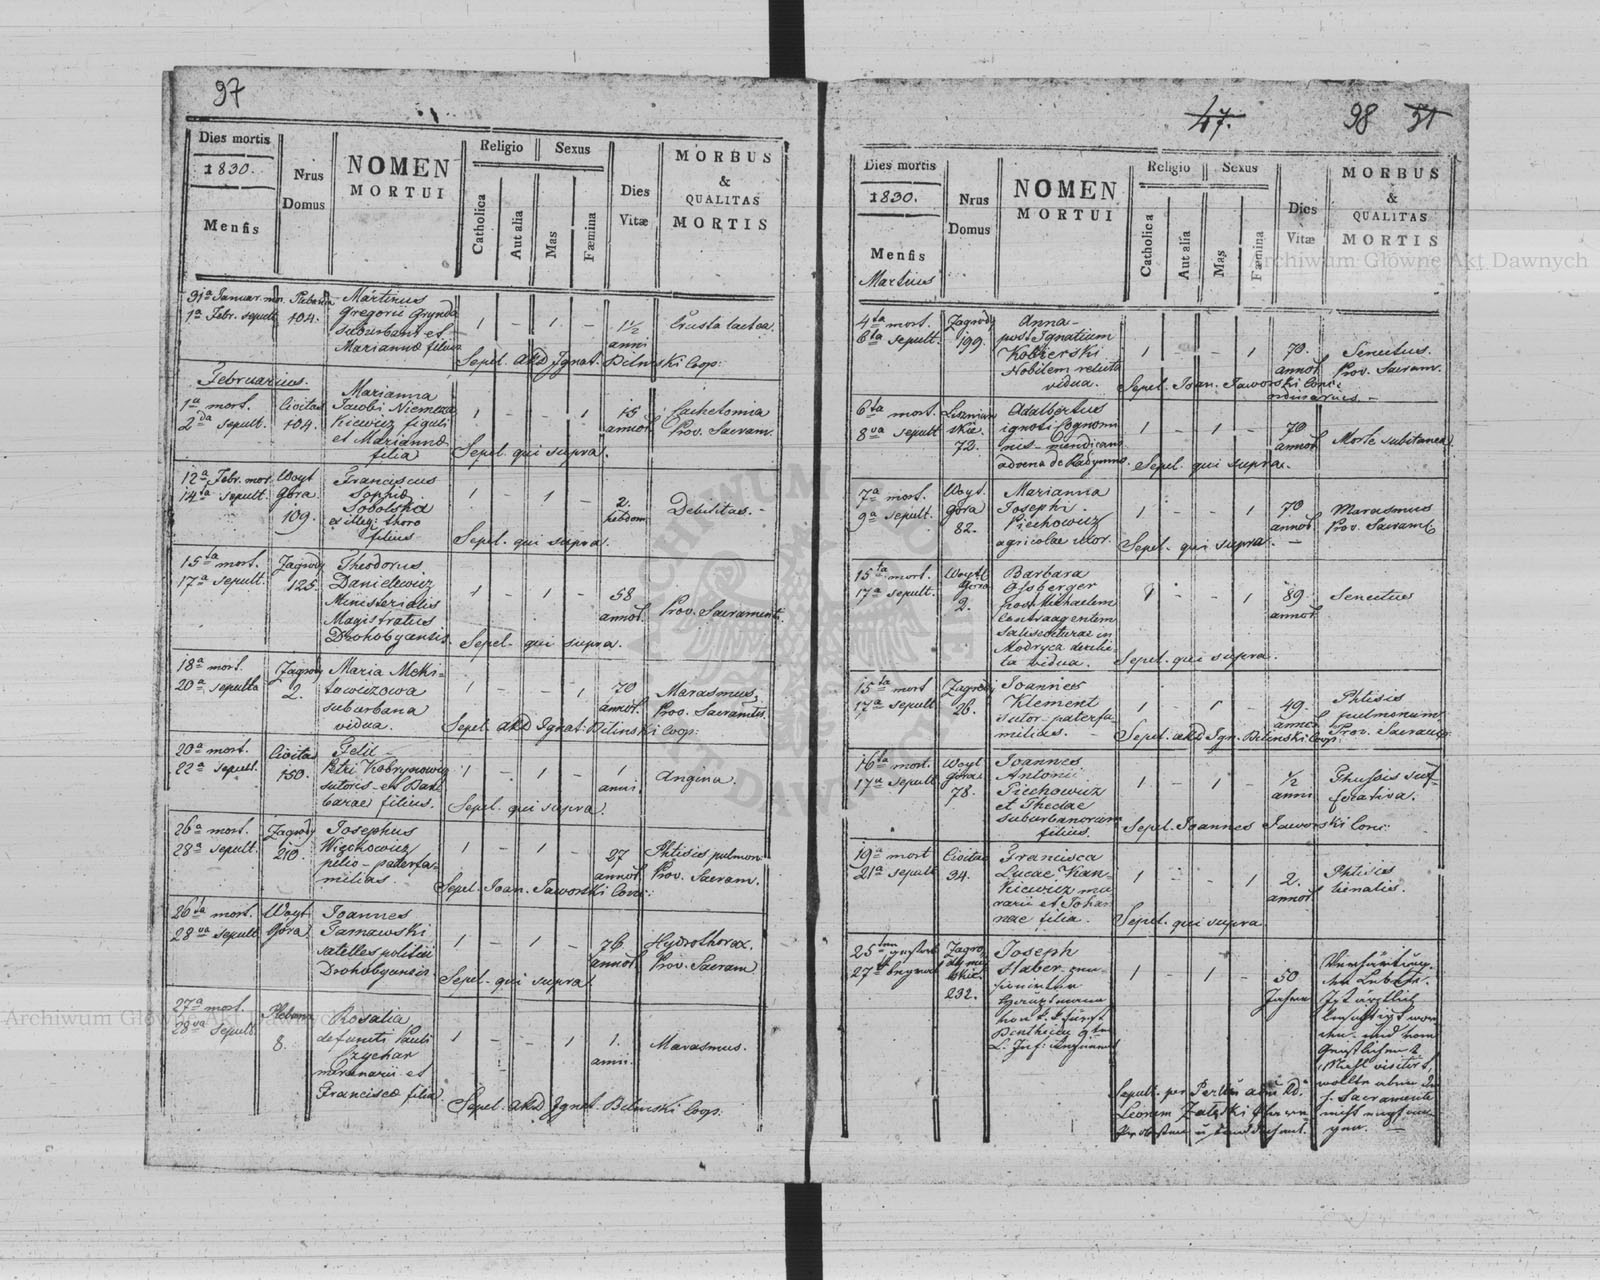 97
Dies mortis
1830.
Mensis
Nrus
Domus
NOMEN
MORTUI
Religio
Sexus
Catholica
Aut alia
Mas
Fæmina
Dies
Vitæ
MORBUS
&
QUALITAS
MORTIS
31a Januar. mor.
1a Febr. sepult.
Plebania
104.
Martinus
Gregorii Grynda
suburbani et
Mariannæ filius
1 - 1. -
1½
anni
Crusta lactea.
Sepel. ARD Ignat. Bilinski Coop:
Februarius.
1a mort.
2da sepult.
Civitas
104.
Marianna
Jacobi
Kiewicz figuli
et Mariannæ
filia
1 - - 1
15
annor.
Prov. Sacram.
Sepel. qui supra.
12a Febr. mor.
14ta sepult.
Woyt
Góra
109.
Franciscus
Sophiæ
Sobolska
ex illeg: thoro
filius
1 - 1 -
2.
hebdom.
Debilitas. -
Sepel. qui supra.
15ta mort.
17a sepult.
Zagrody
125.
Theodorus
Danielewicz
Ministerialis
Magistratus
Drohobycensis.
1 - 1. -
58
annor.
Prov. Sacrament.
Sepel. qui supra.
18a mort.
20a sepulta
Zagrody
2.
Maria Meki-
towiczowa
suburbana
vidua.
1 - - 1
70
annor.
Marasmus,
Prov. Sacramtis.
Sepel. ARD Ignat: Bilinski Coop:
20a mort.
22a sepult.
Civitas
150.
Felix
Petri
sutoris et Bar-
barae filius.
1 - 1 -
1
anni
Angina.
Sepel. qui supra.
26a mort.
28a sepult.
Zagrody
210.
Josephus
Wiechowicz
pelio - paterfa-
milias.
1 - 1 -
27
annor.
Phtisis pulmon:
Prov. Sacram.
Sepel. Joan. Jaworski Conc:
26ta mort.
28va sepult.
Woyt
Góra
Joannes
Tarnawski
satelles politiæ
Drohobycensis
1 - 1 -
76
annor.
Hydrothorax.
Prov. Sacram
Sepel. qui supra.
27a mort.
28va sepult.
Plebania
8.
Rosalia
defuncti Pauli
Czychar
mercenarii et
Franciscæ filia.
1 - - 1
1.
anni.
Marasmus.
Sepel. ARD Ignat. Bilinski Coop.
47.
98
51
Dies mortis
1830.
Mensis
Martius
Nrus
Domus
NOMEN
MORTUI
Religio
Sexus
Catholica
Aut alia
Mas
Fæmina
Dies
Vitæ
MORBUS
&
QUALITAS
MORTIS
4ta mort.
6ta sepult.
Zagrody
199.
Anna -
post Ignatium
Kobierski
Nobilem relicta
vidua.
1 - - 1
70
annor.
Senectus.
Prov. Sacram.
Sepel. Joan. Jaworski Conc.
ordinarius. -
6ta mort.
8va sepult
72.
Adalbertus
ignoti Cognomi
nis mendicans
advena de Radymno.
1 - 1 -
70
annor.
Morte subitanea.
Sepel. qui supra.
7a mort.
9a sepult.
Woyt.
góra
82.
Marianna
Josephi
Piechowicz
agricolae uxor.
1 - - 1
70
annor.
Marasmus
Prov. Sacram.
Sepel. qui supra. -
15ta mort.
17a sepult.
Woyt
Góra
2.
Barbara
Ofsberger
post Michaelem
Contraagentem
Salisculturae in
Modryca
vidua.
1 - - 1
89
annor.
Senectus
Sepel. qui supra.
15ta mort
17a sepult
Zagrody
26.
Joannes
Klement
sutor - paterfa-
milias.
1 - 1 -
49.
annor.
Phtisis
pulmonum
Prov. Sacram.
Sepel. ARD Ign. Bilinski Coop.
16ta mort.
17a sepult
Woyt
Góra
78.
Joannes
Antonii
Piechowicz
et Theclae
suburbanorum
filius.
1 - 1 -
½
anni
Thussis suf-
focativa.
Sepel. Joannes Jaworski Conc:
19a mort
21a sepult
Civitas
34.
Francisca
Lucae Kan-
Kiewicz mu-
rarii et Johan
nae filia.
1 - - 1
2.
annor.
Phtisis
Sepel. qui supra
232.
Joseph
1 - 1 -
50
Jahre
Archiwum Główne Akt Dawnych
Archiwum Główne Akt Dawnych